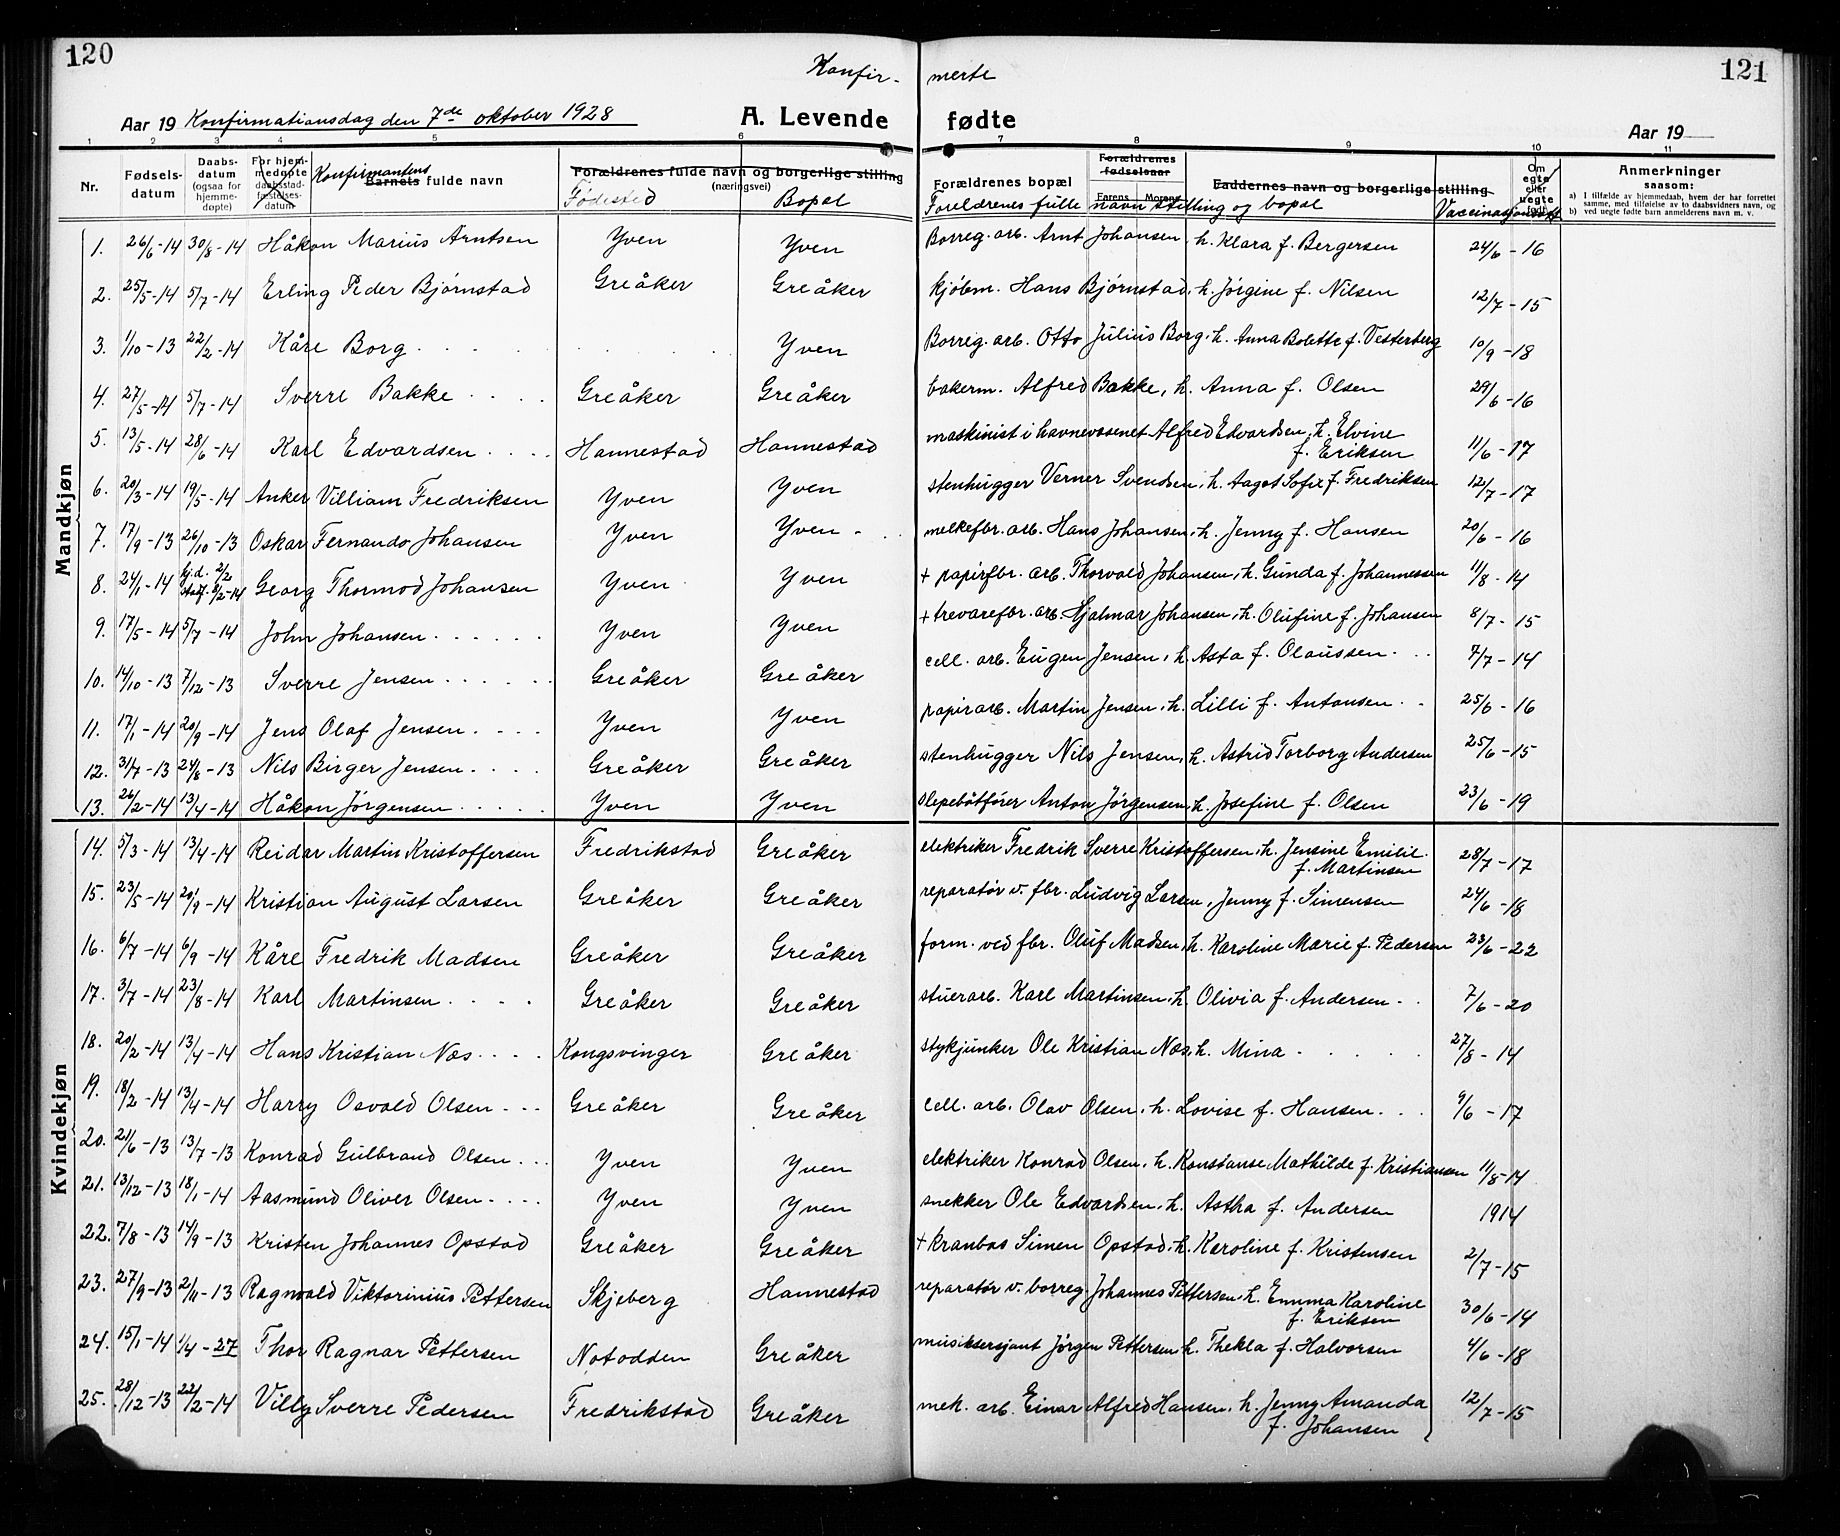 120
121
Konfir- merte
Aar 19 Konfirmationsdag den 7de oktober 1928 A. Levende fødte Aar 19
1 2 3 4 5 6 7 8 9 10 11
Nr. Fødsels-datum Daabs-datum (ogsaa for hjemme-døpte) For hjem-medøpte daabsstad-fæstelses-datum Konfirmantens Barnets fulde navn Forældrenes fulde navn og borgerlige stilling (næringsvei) Forældrenes bopæl Forældrenes fødselsaar Farens Morens Faddernes navn og borgerlige stilling Om egte eller uegte født Anmerkninger saasom:
a) I tilfælde av hjemmedaab, hvem der har forrettet samme, med tilføielse av to daabsvidners navn, og
b) ved uegte fødte barn anmelderens navn m. v.
Fødested Bopæl Foreldrenes fulle navn stilling og bopæl
Mandkjøn
1. 26/6-14 30/8-14 Håkon Marius Arntsen Yven Yven Borreg. arb. Arnt Johansen, h. Klara f. Bergersen 24/6-16
2. 25/5-14 5/7-14 Erling Peder Bjørnstad Greåker Greåker kjøbm. Hans Bjørnstad, h. Jørgine f. Nilsen 12/7-15
3. 1/10-13 22/2-14 Kåre Borg . . . . . . . Yven Borreg. arb. Otto Julius Borg, h. Anna Bolette f. Vesterberg 10/9-18
4. 27/5-14 5/7-14 Sverre Bakke . . . . Greåker Greåker bakerm. Alfred Bakke, h. Anna f. Olsen 29/6-16
5. 13/5-14 28/6-14 Karl Edvardsen . . . . Hannestad Hannestad maskinist i havnevæsenet Alfred Edvardsen, h. Elvine
f. Eriksen 11/6-17
6. 20/3-14 19/5-14 Anker Villiam Fredriksen Yven Yven stenhugger Verner Svendsen, h. Aagot Sofie f. Fredriksen 12/7-17
7. 17/9-13 26/10-13 Oskar Fernando Johansen Yven Yven melkefbr. arb. Hans Johansen, h. Jenny f. Hansen 20/6-16
8. 24/1-14 hj.d. 2/2 stadf. 8/2-14 Georg Thormod Johansen Yven Yven + papirfbr. arb. Thorvald Johansen, h. Gunda f. Johannessen 11/8-14
9. 17/5-14 5/7-14 John Johansen . . . . . . Yven Yven + trevarefbr. arb. Hjalmar Johansen, h. Olufine f. Johansen 8/7-15
10. 14/10-13 7/12-13 Sverre Jensen . . . . . . Greåker Greåker cell. arb. Eugen Jensen, h. Asta f. Olaussen . . . 7/7-14
11. 17/1-14 20/9-14 Jens Olaf Jensen . . . . Yven Yven papirarb. Martin Jensen, h. Lilli f. Antonsen . . 25/6-16
12. 31/7-13 24/8-13 Nils Birger Jensen . . . . Greåker Greåker stenhugger Nils Jensen, h. Astrid Torborg Andersen 25/6-15
13. 26/2-14 13/4-14 Håkon Jørgensen . . . . . Yven Yven slepebåtfører Anton Jørgensen, h. Josefine f. Olsen 23/6-19
Kvindekjøn
14. 5/3-14 13/4-14 Reidar Martin Kristoffersen Fredrikstad Greåker elektriker Fredrik Sverre Kristoffersen, h. Jensine Emilie
f. Martinsen 28/7-17
15. 23/5-14 20/9-14 Kristian August Larsen Greåker Greåker reparatør v. fbr. Ludvig Larsen, Jenny f. Simensen 24/6-18
16. 6/7-14 6/9-14 Kåre Fredrik Madsen Greåker Greåker form. ved fbr. Oluf Madsen, h. Karoline Marie f. Pedersen 23/6-22
17. 3/7-14 23/8-14 Karl Martinsen . . . . Greåker Greåker stuerarb. Karl Martinsen, h. Olivia f. Andersen . . 7/6-20
18. 20/2-14 13/4-14 Hans Kristian Næs . . . . Kongsvinger Greåker stykjunker Ole Kristian Næs, h. Mina . . . . . . 27/8-14
19. 18/2-14 13/4-14 Harry Osvald Olsen . . . Greåker Greåker cell. arb. Olav Olsen, h. Lovise f. Hansen . . . 9/6-17
20. 21/6-13 13/7-13 Konrad Gulbrand Olsen . . . Yven Yven elektriker Konrad Olsen, h. Konstanse Mathilde f. Kristiansen 11/8-14
21. 13/12-13 18/1-14 Aasmund Oliver Olsen . . . . Yven Yven snekker Ole Edvardsen, h. Astha f. Andersen 1914
22. 7/8-13 14/9-13 Kristen Johannes Opstad Greåker Greåker + kranbas Simen Opstad, h. Karoline f. Kristensen 2/7-15
23. 27/9-13 2/11-13 Ragnvald Viktorinius Pettersen Skjeberg Hannestad reparatør v. borreg. Johannes Pettersen, h. Emma Karoline
f. Eriksen 30/6-14
24. 15/1-14 1/4-27 Thor Ragnar Pettersen Notodden Greåker musiksersjant Jørgen Pettersen h. Thekla f. Halvorsen 4/6-18
25. 28/12-13 22/2-14 Villy Sverre Pedersen Fredrikstad Greåker mek. arb. Einar Alfred Hansen, h. Jenny Amanda
f. Johansen 12/7-15